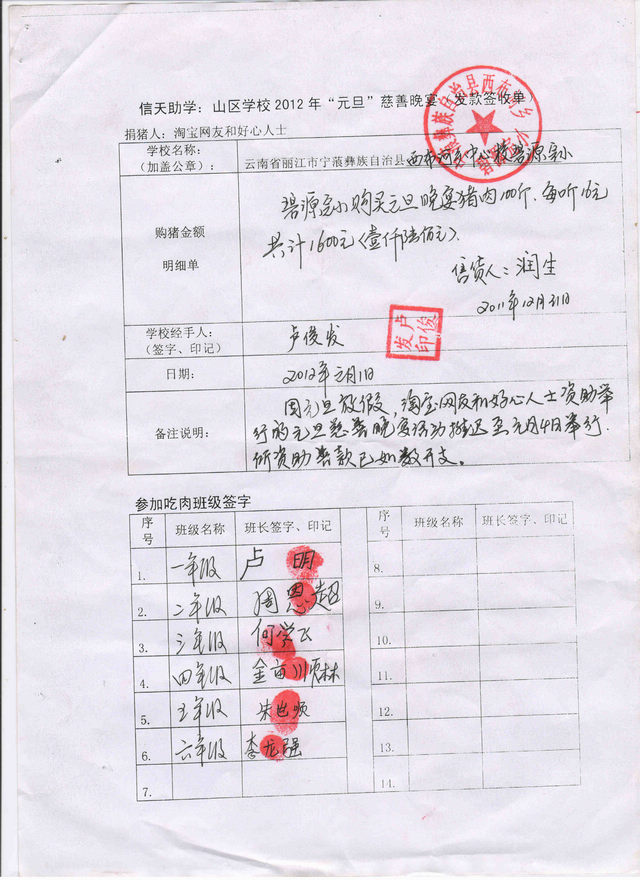 信天助学：山区学校2012年“元旦”慈善晚宴（发款签收单）
捐猪人：淘宝网友和好心人士
学校名称：
（加盖公章）：
云南省丽江市宁蒗彝族自治县西布河乡中心校碧源完小
购猪金额
明细单
碧源完小购买元旦晚宴猪肉100斤、每斤16元
共计1600元（壹仟陆佰元）.
售货人：润生
2011年12月31日
学校经手人：
（签字、印记）
卢俊发
卢俊
发印
日期：
2012年元月1日
备注说明：
因元旦放假，淘宝网友和好心人士资助举
行的元旦慈善晚宴活动推迟至元月4日举行.
所资助善款已如数开支。
参加吃肉班级签字
序号 班级名称 班长签字、印记 序号 班级名称 班长签字、印记
1. 一年级 卢 明 8.
2. 二年级 周恩超 9.
3. 三年级 何学飞 10.
4. 四年级 金亩川顺林 11.
5. 五年级 朱 顺 12.
6. 六年级 李龙强 13.
7. 14.